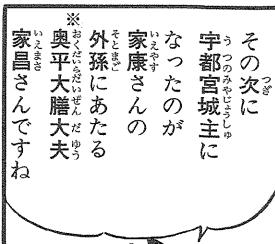 その次に
宇都宮城主に
なったのが
家康さんの
外孫にあたる
※奥平大膳大夫
家昌さんですね